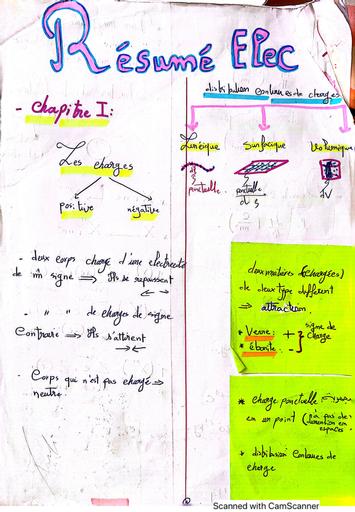 Résumé Elec
- Chapitre I:
Les charges
positive
négative
- deux corps chargé d'une électricité
de m̂ signe ⇒ Ils se repoussent
- " " de charges de signe
Contraire ⇒ Ils s'attirent
- Corps qui n'est pas chargé ⇒
neutre.
distribution continues de charges
Linéique
Surfacique
Volumique
ponctuelle
ponctuelle
dS
dV
deux matières (chargées)
de deux type différent
⇒ attraction.
* Verre: + } signe de
charge
* ébonite: -
* charge ponctuelle
en un point (n'a pas de
dimention en
espaces.
* distribution continues de
charge
Scanned with CamScanner